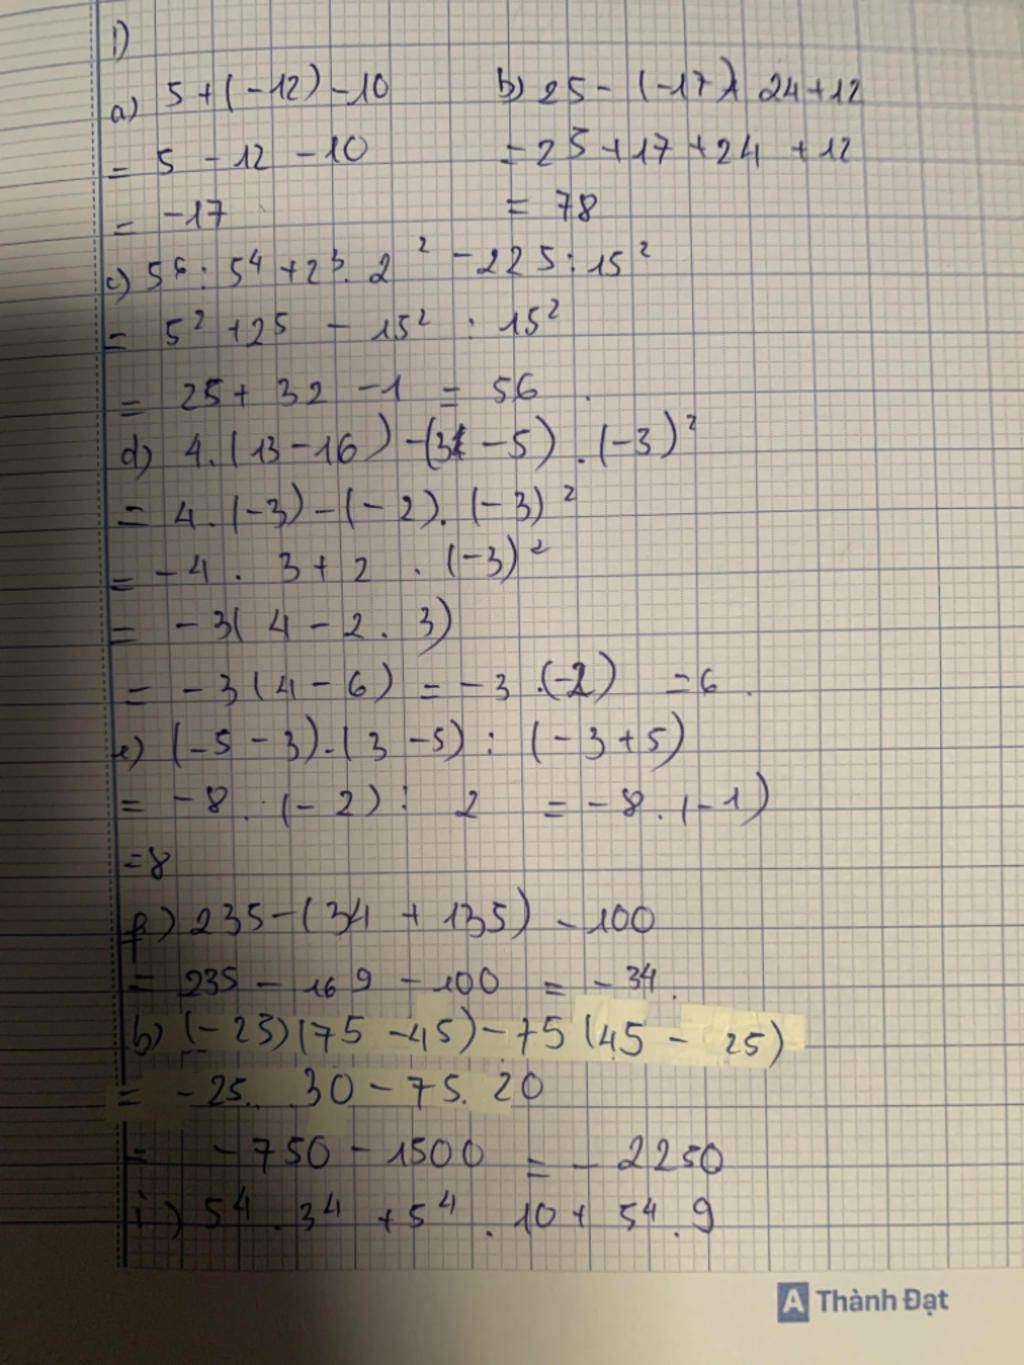 1)
a) 5 + (-12) - 10
= 5 - 12 - 10
= -17
b) 25 - (-17) + 24 + 12
= 25 + 17 + 24 + 12
= 78
c) 5⁶ : 5⁴ + 2³ . 2² - 225 : 15²
= 5² + 2⁵ - 15² : 15²
= 25 + 32 - 1 = 56 .
d) 4 . (13 - 16) - (3 - 5) . (-3)²
= 4 . (-3) - (-2) . (-3)²
= -4 . 3 + 2 . (-3)²
= -3( 4 - 2 . 3)
= -3 (4 - 6) = -3 . (-2) = 6 .
e) (-5 - 3) . (3 - 5) : (-3 + 5)
= -8 . (-2) : 2 = -8 . (-1)
= 8
f) 235 - (34 + 135) - 100
= 235 - 169 - 100 = -34 .
b) (-25) (75 - 45) - 75 (45 - 25)
= -25 . 30 - 75 . 20
= -750 - 1500 = -2250
i) 5⁴ . 3⁴ + 5⁴ . 10 + 5⁴ . 9
A Thành Đạt